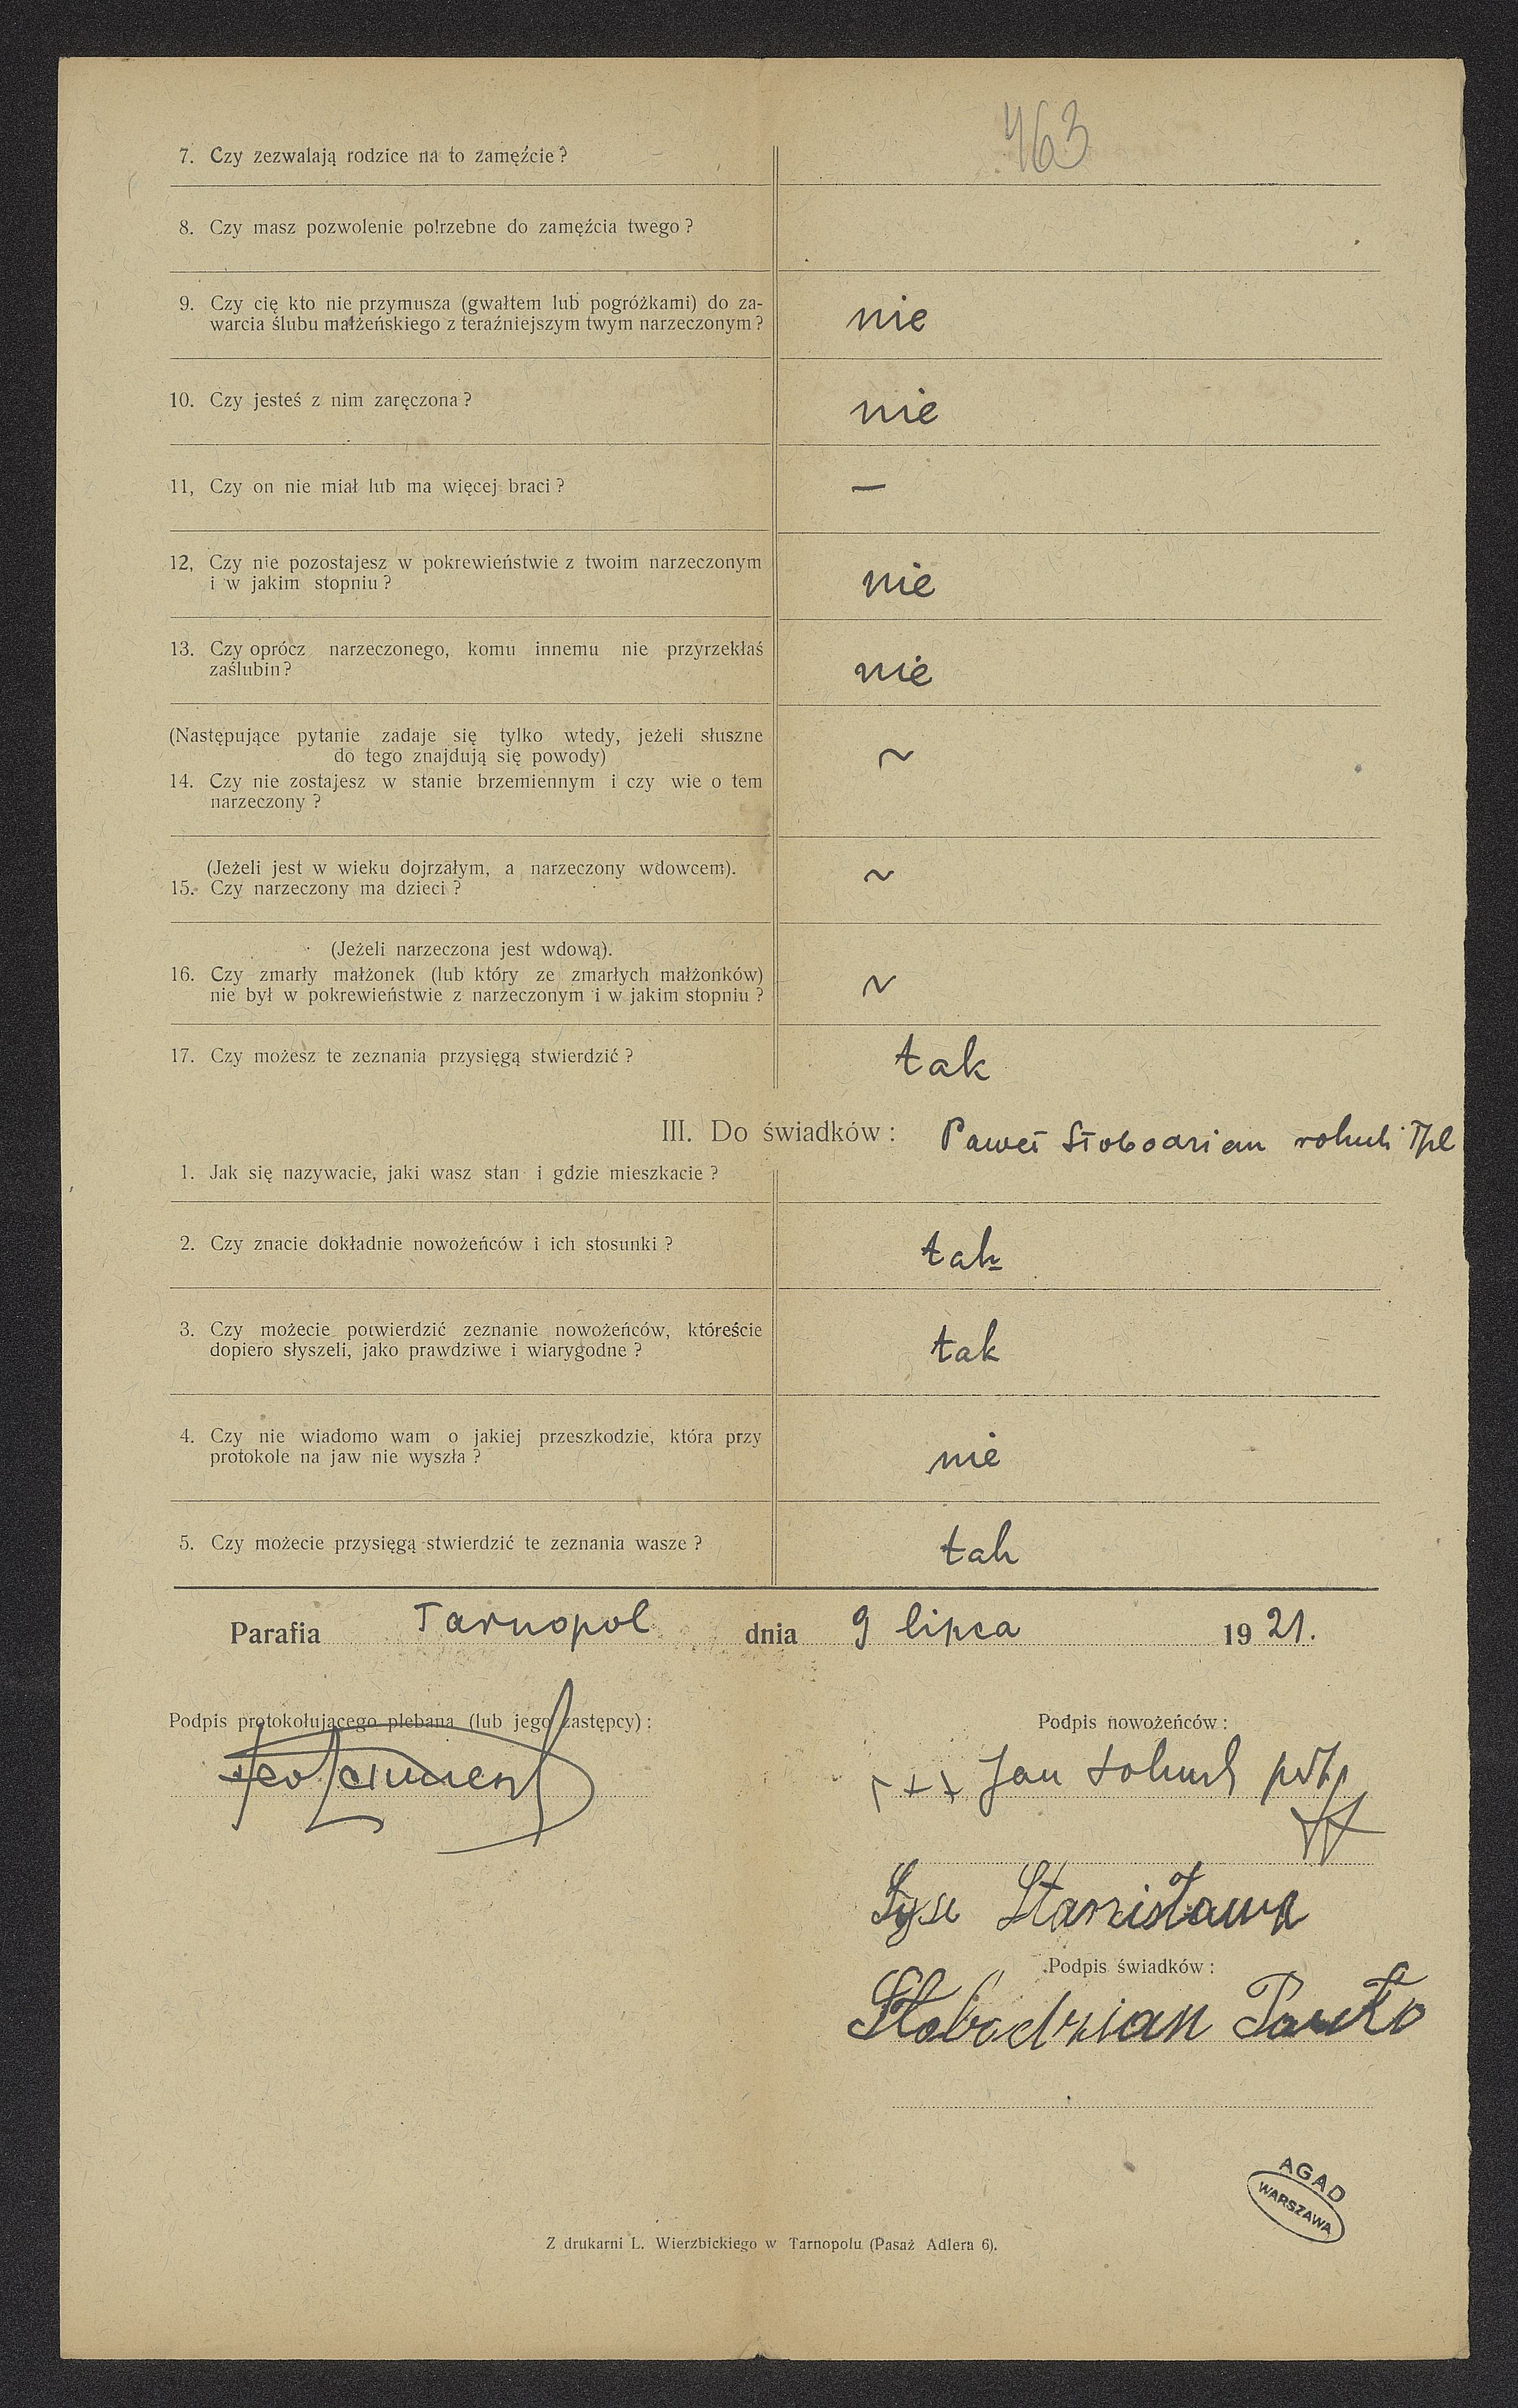 463
7. Czy zezwalają rodzice na to zamęźcie ?
8. Czy masz pozwolenie potrzebne do zamęźcia twego ?
9. Czy cię kto nie przymusza (gwałtem lub pogróżkami) do za-
warcia ślubu małżeńskiego z teraźniejszym twym narzeczonym ?
nie
10. Czy jesteś z nim zaręczona ?
nie
11, Czy on nie miał lub ma więcej braci ?
—
12, Czy nie pozostajesz w pokrewieństwie z twoim narzeczonym
i w jakim stopniu ?
nie
13. Czy oprócz narzeczonego, komu innemu nie przyrzekłaś
zaślubin ?
nie
(Następujące pytanie zadaje się tylko wtedy, jeżeli słuszne
do tego znajdują się powody)
~
14. Czy nie zostajesz w stanie brzemiennym i czy wie o tem
narzeczony ?
(Jeżeli jest w wieku dojrzałym, a narzeczony wdowcem).
15. Czy narzeczony ma dzieci ?
~
(Jeżeli narzeczona jest wdową).
16. Czy zmarły małżonek (lub który ze zmarłych małżonków)
nie był w pokrewieństwie z narzeczonym i w jakim stopniu ?
~
17. Czy możesz te zeznania przysięgą stwierdzić ?
tak
III. Do świadków :
Paweł Słobodzian Tpl
1. Jak się nazywacie, jaki wasz stan i gdzie mieszkacie ?
2. Czy znacie dokładnie nowożeńców i ich stosunki ?
tak
3. Czy możecie potwierdzić zeznanie nowożeńców, któreście
dopiero słyszeli, jako prawdziwe i wiarygodne ?
tak
4. Czy nie wiadomo wam o jakiej przeszkodzie, która przy
protokole na jaw nie wyszła ?
nie
5. Czy możecie przysięgą stwierdzić te zeznania wasze ?
tak
Parafia Tarnopol dnia 9 lipca 1921.
Podpis protokołującego plebana (lub jego zastępcy) :
Podpis nowożeńców :
+++ Jan
Stanisława
Podpis świadków :
Słobodzian Pawło
AGAD
WARSZAWA
Z drukarni L. Wierzbickiego w Tarnopolu (Pasaż Adlera 6).